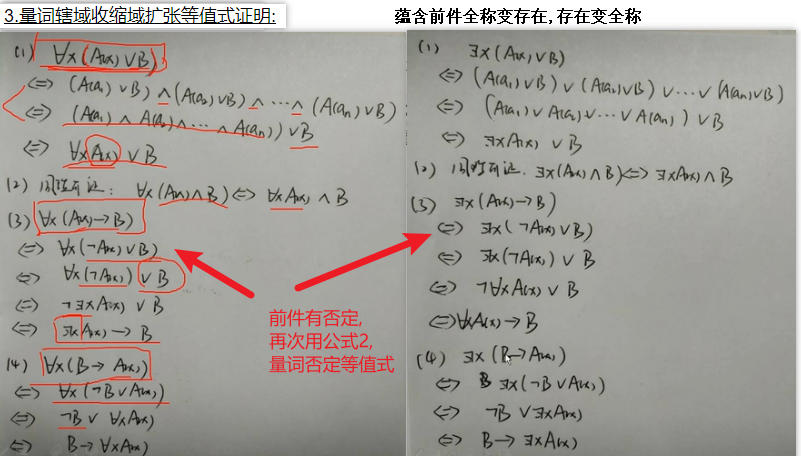 3.量词辖域收缩域扩张等值式证明:
蕴含前件全称变存在,存在变全称
(1) ∀x(A(x)∨B)
⇔ (A(a₁)∨B)∧(A(a₂)∨B)∧⋯∧(A(aₙ)∨B)
⇔ (A(a₁)∧A(a₂)∧⋯∧A(aₙ))∨B
⇔ ∀xA(x)∨B
(2) 同理可证: ∀x(A(x)∧B)⇔∀xA(x)∧B
(3) ∀x(A(x)→B)
⇔ ∀x(¬A(x)∨B)
⇔ ∀x(¬A(x))∨B
⇔ ¬∃xA(x)∨B
⇔ ∃xA(x)→B
(4) ∀x(B→A(x))
⇔ ∀x(¬B∨A(x))
⇔ ¬B∨∀xA(x)
⇔ B→∀xA(x)
前件有否定,
再次用公式2,
量词否定等值式
(1) ∃x(A(x)∨B)
⇔ (A(a₁)∨B)∨(A(a₂)∨B)∨⋯∨(A(aₙ)∨B)
⇔ (A(a₁)∨A(a₂)∨⋯∨A(aₙ))∨B
⇔ ∃xA(x)∨B
(2) 同理可证. ∃x(A(x)∧B)⇔∃xA(x)∧B
(3) ∃x(A(x)→B)
⇔ ∃x(¬A(x)∨B)
⇔ ∃x(¬A(x))∨B
⇔ ¬∀xA(x)∨B
⇔ ∀xA(x)→B
(4) ∃x(B→A(x))
⇔ ∃x(¬B∨A(x))
⇔ ¬B∨∃xA(x)
⇔ B→∃xA(x)